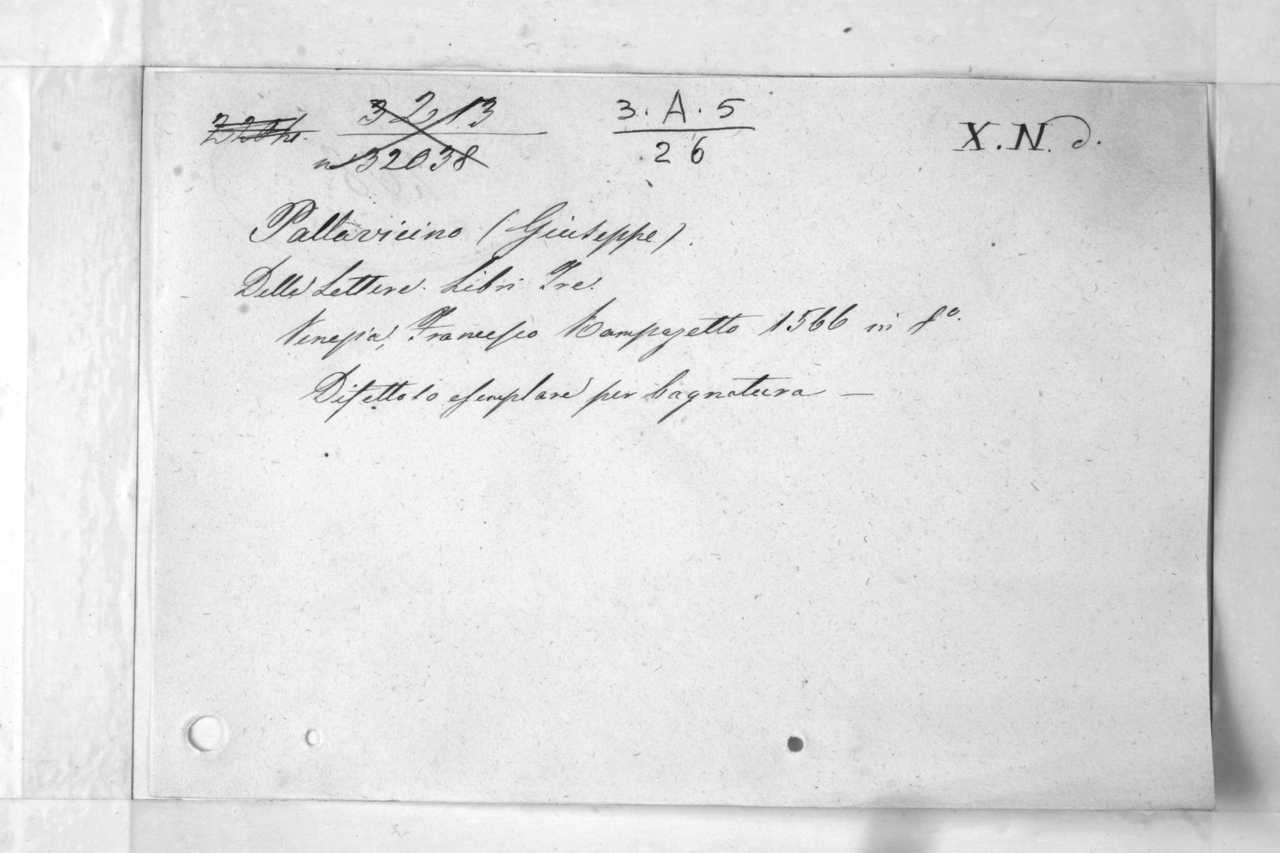 3 2 13
n 32038
3. A. 5
26
X. N. d.
Pallavicino (Giuseppe).
Delle Lettere. Libri Tre.
Venezia, Francesco Rampazetto 1566 in 8º.
Difettoso esemplare per bagnatura —